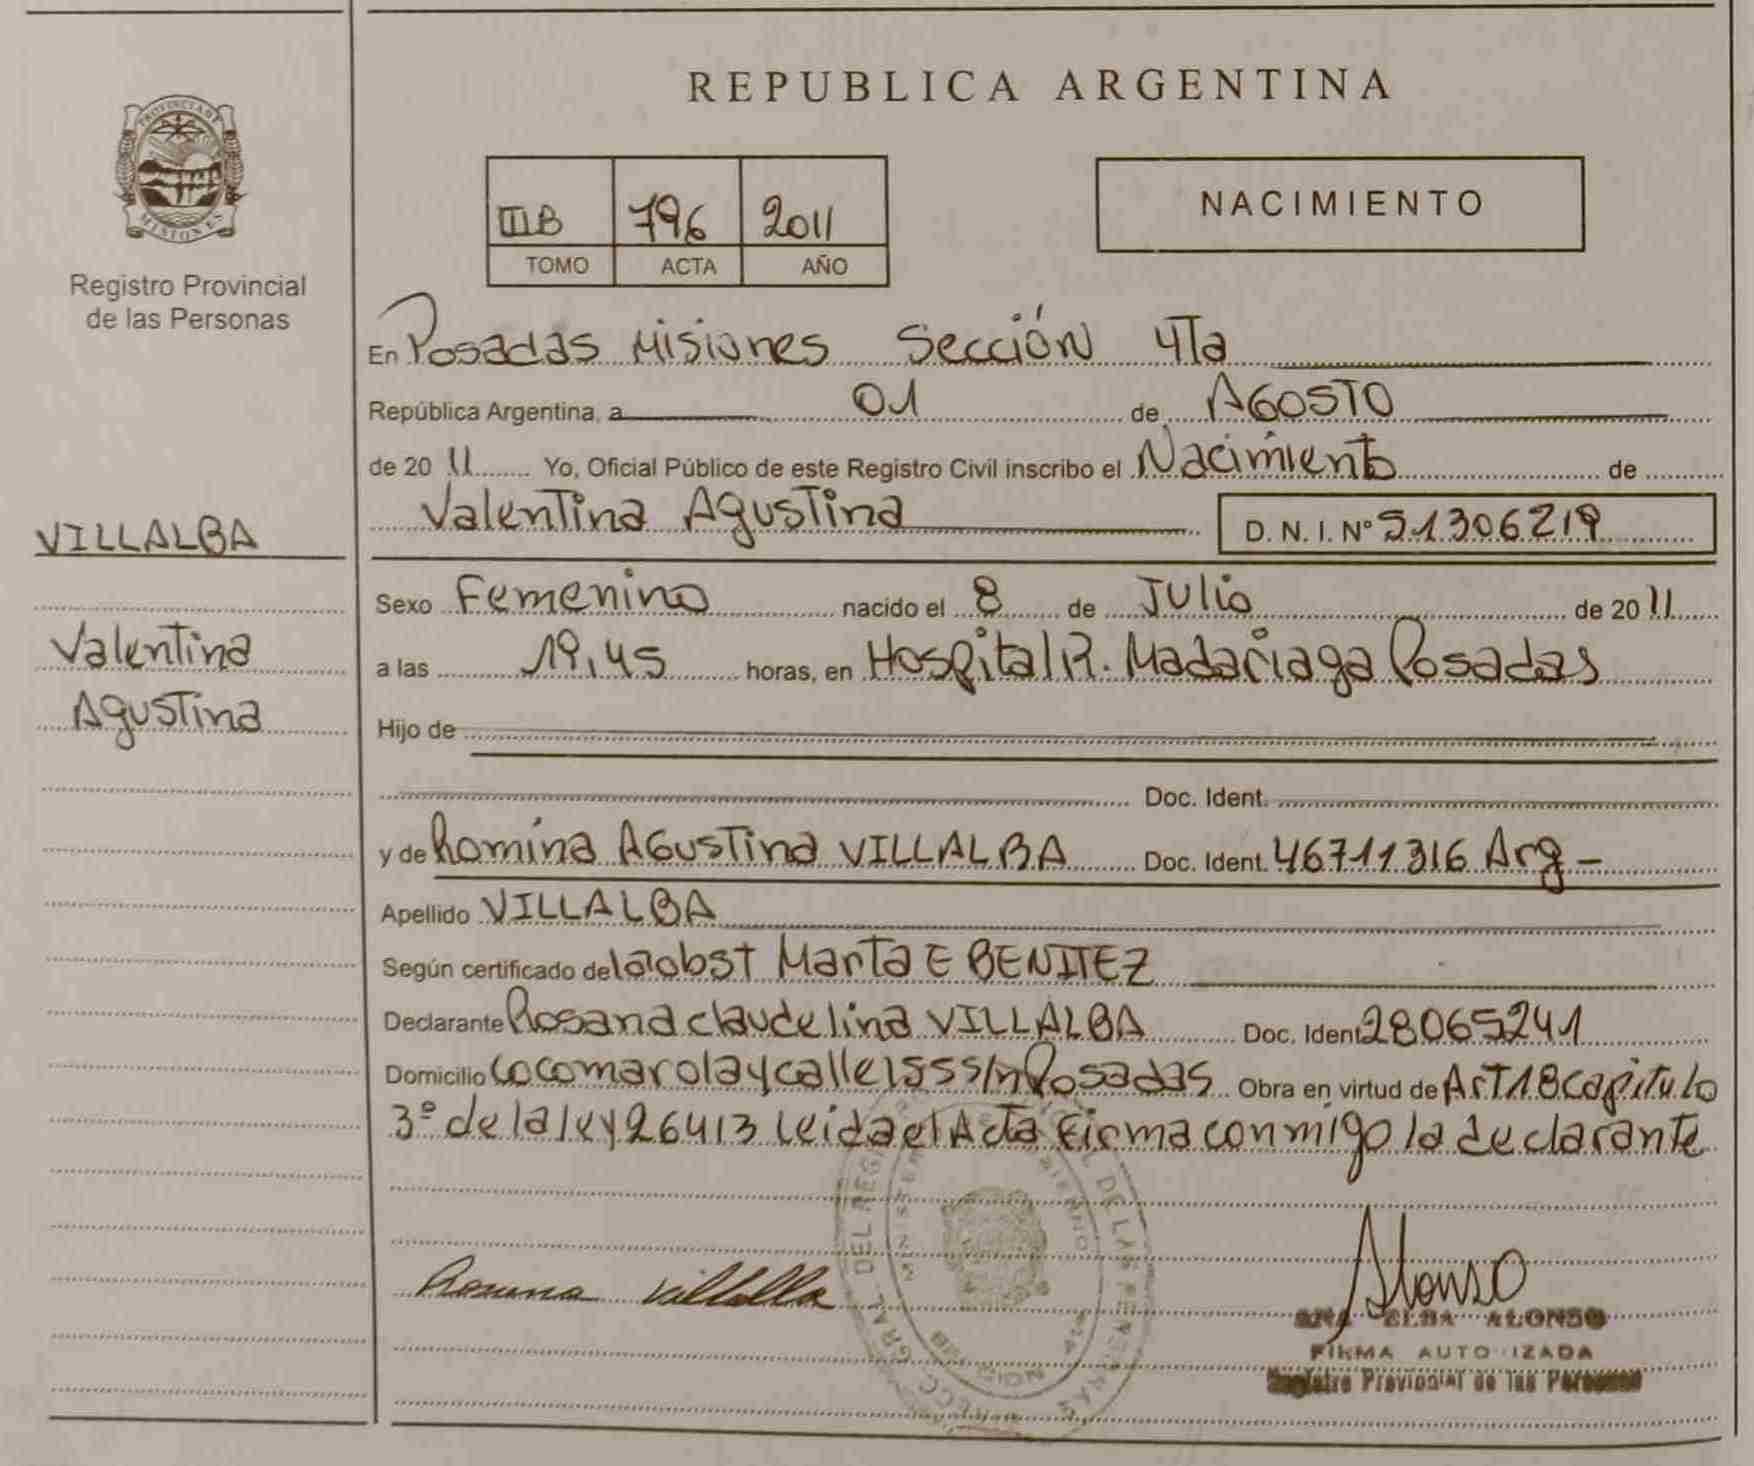 REPUBLICA ARGENTINA
PROVINCIA DE MISIONES
Registro Provincial
de las Personas
IIB 796 2011
TOMO ACTA AÑO
NACIMIENTO
En Posadas Misiones Sección 4Ta
República Argentina, a 01 de AGOSTO
de 2011 Yo, Oficial Público de este Registro Civil inscribo el Nacimiento de
Valentina Agustina D. N. I. Nº 51306219
VILLALBA
Valentina
Agustina
Sexo Femenino nacido el 8 de Julio de 2011
a las 19,45 horas, en Hospital R. Madariaga Posadas
Hijo de
Doc. Ident.
y de Romina AGustina VILLALBA Doc. Ident. 46711316 Arg -
Apellido VILLALBA
Según certificado de la obst Marta E BENITEZ
Declarante Rosana claudelina VILLALBA Doc. Ident 28065241
Domicilio Cocomarola y calle 155 S/n Posadas Obra en virtud de ArT 18 capitulo
3º de la ley 26413 Leida el Acta Firma conmigo la declarante
Alonso
ANA ELBA ALONSO
FIRMA AUTORIZADA
Registro Provincial de las Personas